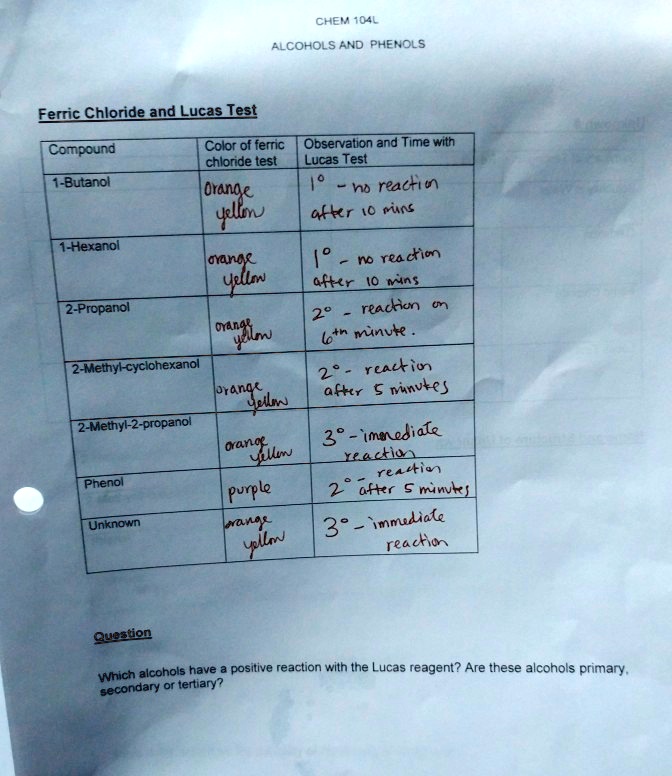 CHEM 104L
ALCOHOLS AND PHENOLS
Ferric Chloride and Lucas Test
Compound
Color of ferric
chloride test
Observation and Time with
Lucas Test
1-Butanol
Orange
yellow
1° - no reaction
after 10 mins
1-Hexanol
orange
yellow
1° - no reaction
after 10 mins
2-Propanol
orange
yellow
2° - reaction on
6th minute.
2-Methyl-cyclohexanol
orange
yellow
2° - reaction
after 5 minutes
2-Methyl-2-propanol
orange
yellow
3° - immediate
reaction
Phenol
purple
2° - reaction
after 5 minutes
Unknown
orange
yellow
3° - immediate
reaction
Question
Which alcohols have a positive reaction with the Lucas reagent? Are these alcohols primary,
secondary or tertiary?